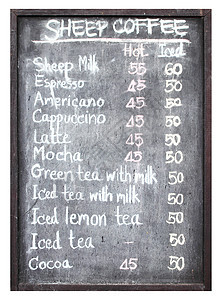 SHEEP COFFEE
Hot Iced
Sheep Milk 55 60
Espresso 45 50
Americano 45 50
Cappuccino 45 50
Latte 45 50
Mocha 45 50
Green tea with milk 50
Iced tea with milk 50
Iced lemon tea 50
Iced tea - 50
Cocoa 45 50